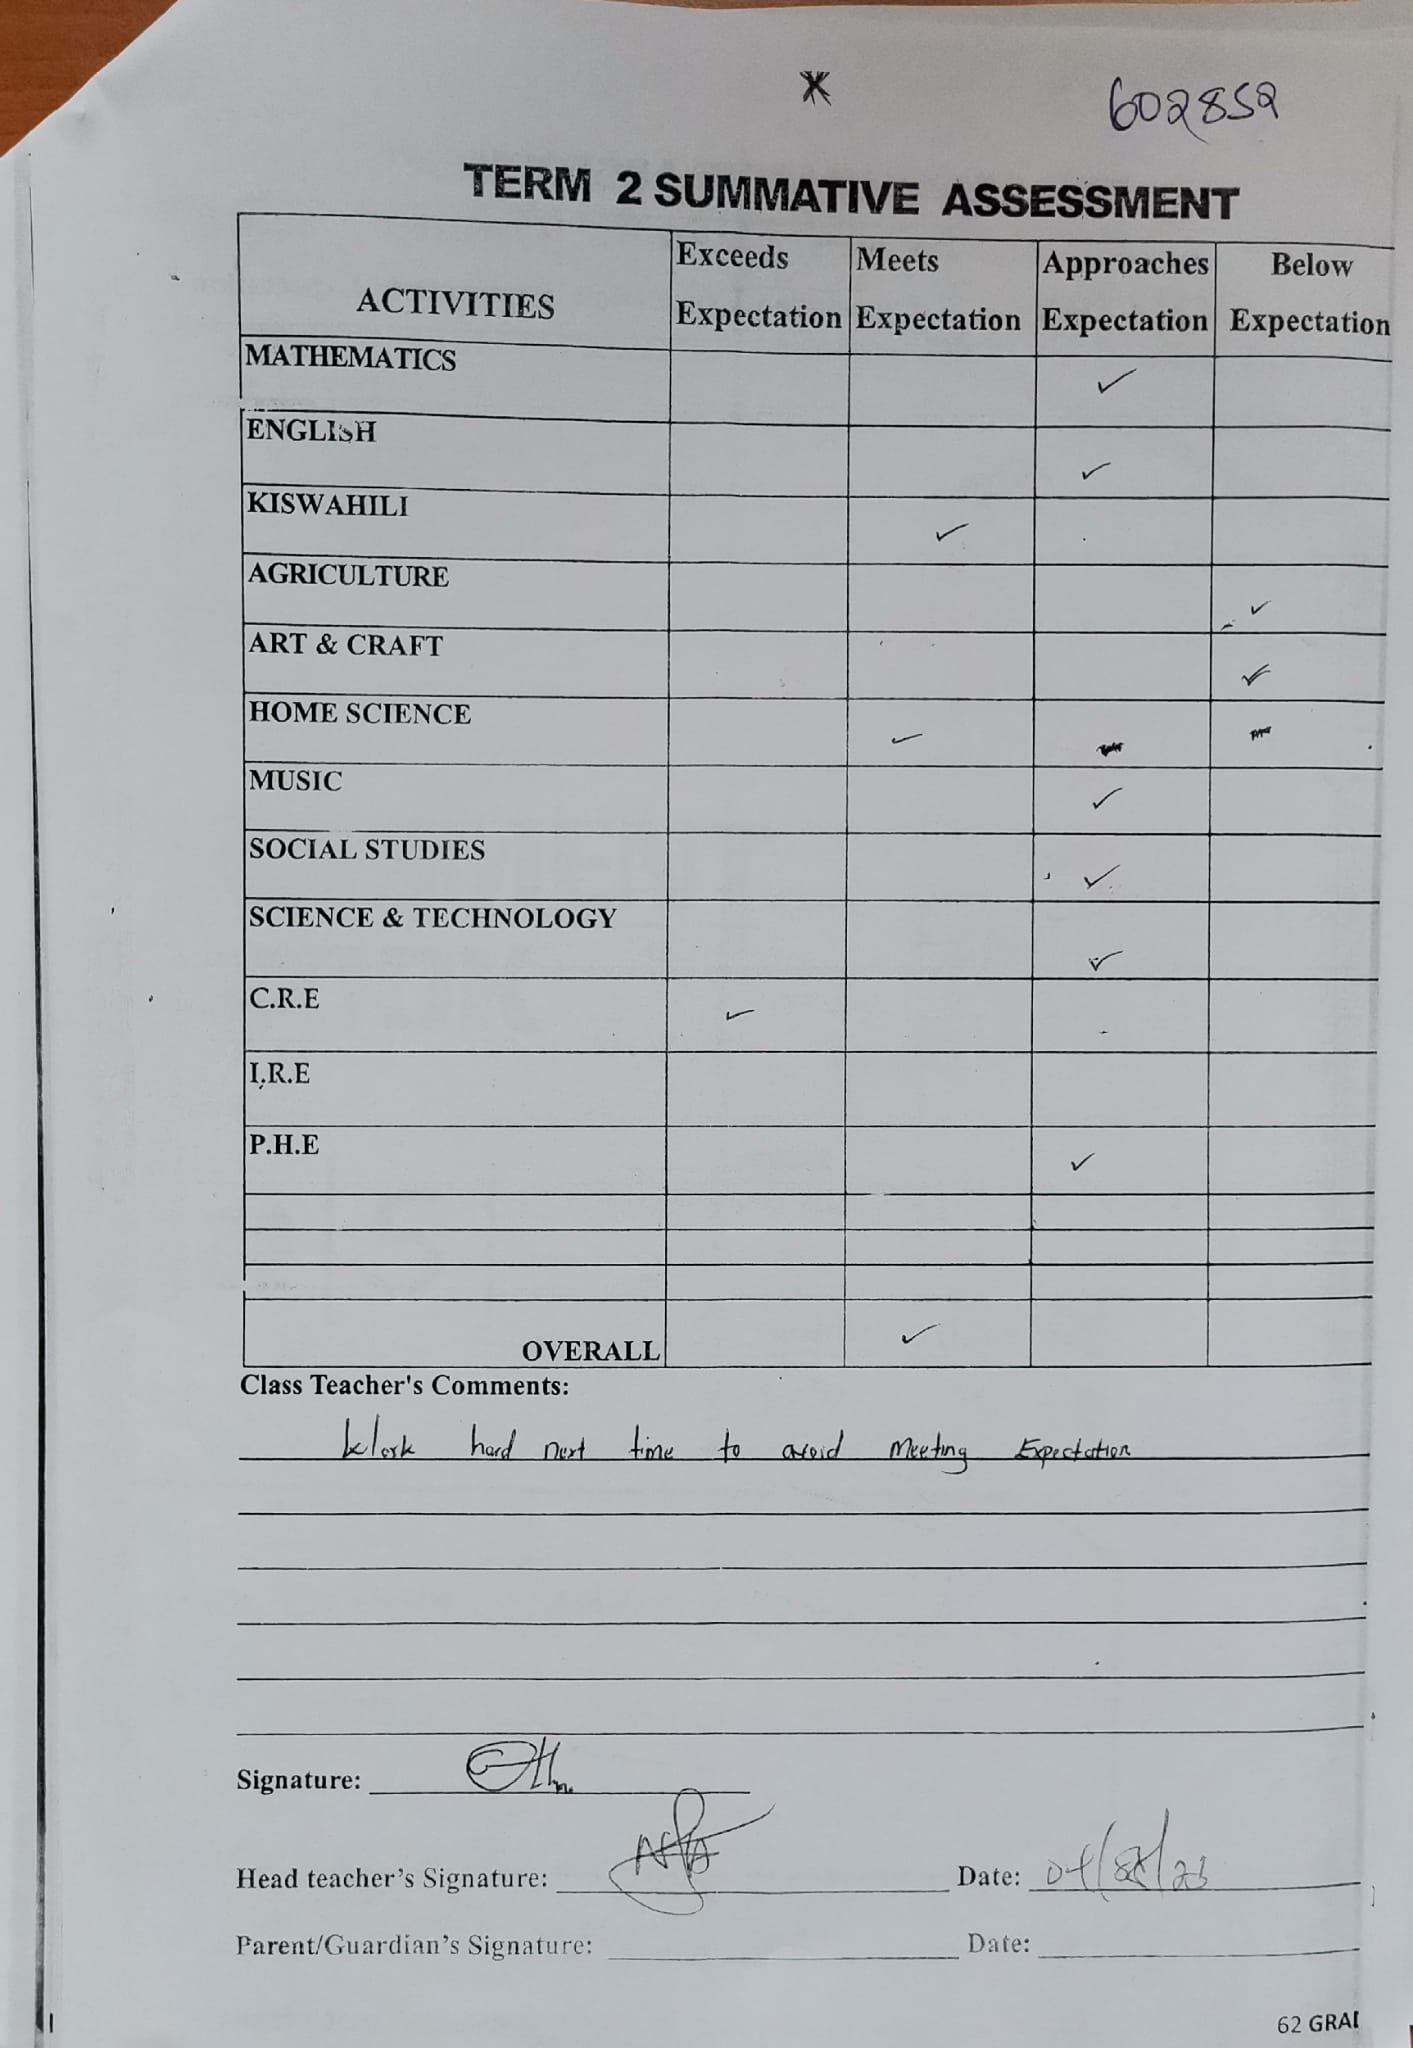 602852
TERM 2 SUMMATIVE ASSESSMENT
ACTIVITIES
Exceeds Expectation
Meets Expectation
Approaches Expectation
Below Expectation
MATHEMATICS ✓
ENGLISH ✓
KISWAHILI ✓
AGRICULTURE ✓
ART & CRAFT ✓
HOME SCIENCE ✓
MUSIC ✓
SOCIAL STUDIES ✓
SCIENCE & TECHNOLOGY ✓
C.R.E ✓
I.R.E
P.H.E ✓
OVERALL ✓
Class Teacher's Comments:
Work hard next time to avoid Meeting Expectation
Signature:
Head teacher's Signature: Date:
Parent/Guardian's Signature: Date:
62 GRAI